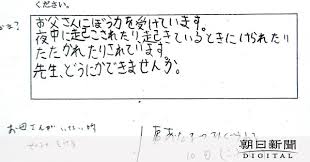 ください。
お父さんにぼう力を受けています。
夜中に起こされたり起きているときにけられたり
たたかれたりされています。
先生、どうにかできませんか。
お母さんが
朝日新聞
DIGITAL